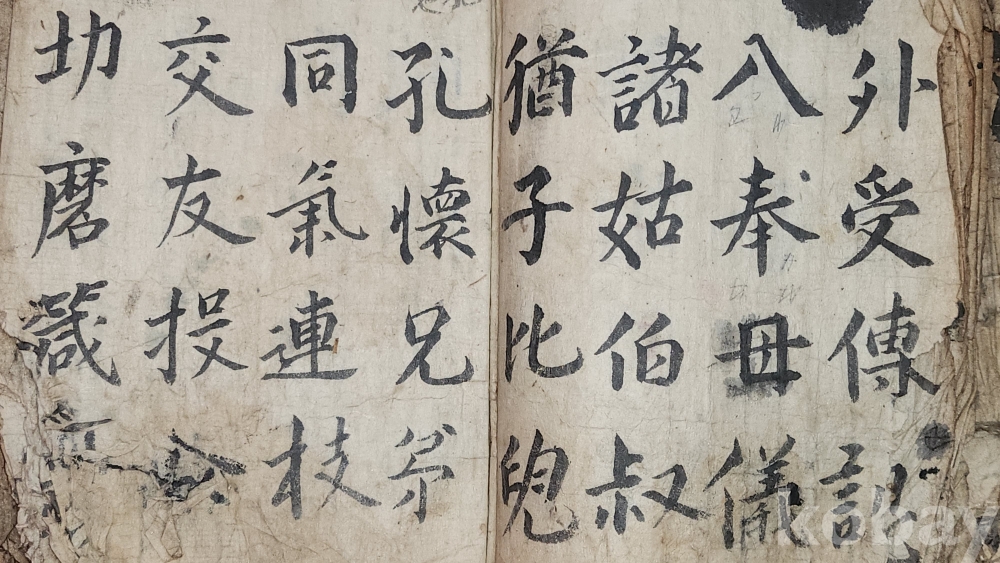 外受傳訓
入奉母儀
諸姑伯叔
猶子比兒
孔懷兄弟
同氣連枝
交友投分
切磨箴
kobay